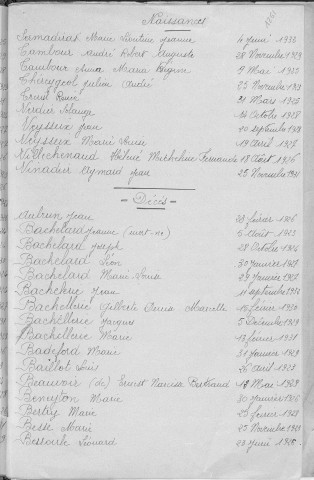 Naissances
Sarmadiras Marie Léontine Jeanne 4 Juin 1933
Tambour André Robert Auguste 28 Novembre 1929
Tambour Anna Maria Régina 9 Mai 1923
Theyegeol Julien André 25 Novembre
31 Mars 1925
Verdier Solange 14 Octobre 1928
Veyssieux Jean 20 Septembre 1928
Veyssieux Marie Louise 19 Avril 1927
Villechenaud Michelline Fernande 18 Août 1926
Vinadier Aymard Jean 25 Novembre
- Décès -
Aubrun Jean 28 février 1926
Bachelard Jeanne (mort-né) 5 Août 1923
Bachelard Joseph 28 Octobre 1924
Bachelard Léon 30 Janvier 1929
Bachelard Marie Louise 29 Janvier 1927
Bachelerie Jean 11 Septembre
Bachellerie Gilberte Denise Marcelle 15 février 1930
Bachellerie Jacques 5 Décembre 1929
Bachellerie Marie 13 février 1931
Badeford Marie 31 Janvier 1929
Baillot Luis 26 Avril 1923
Beauvoir (de) Ernest Bertrand 17 Mai 1929
Beneyton Marie 20 Janvier 1926
Bertry Marie 25 février 1928
Besse Marie 25 Novembre 1928
Bessoule Léonard 28 1925